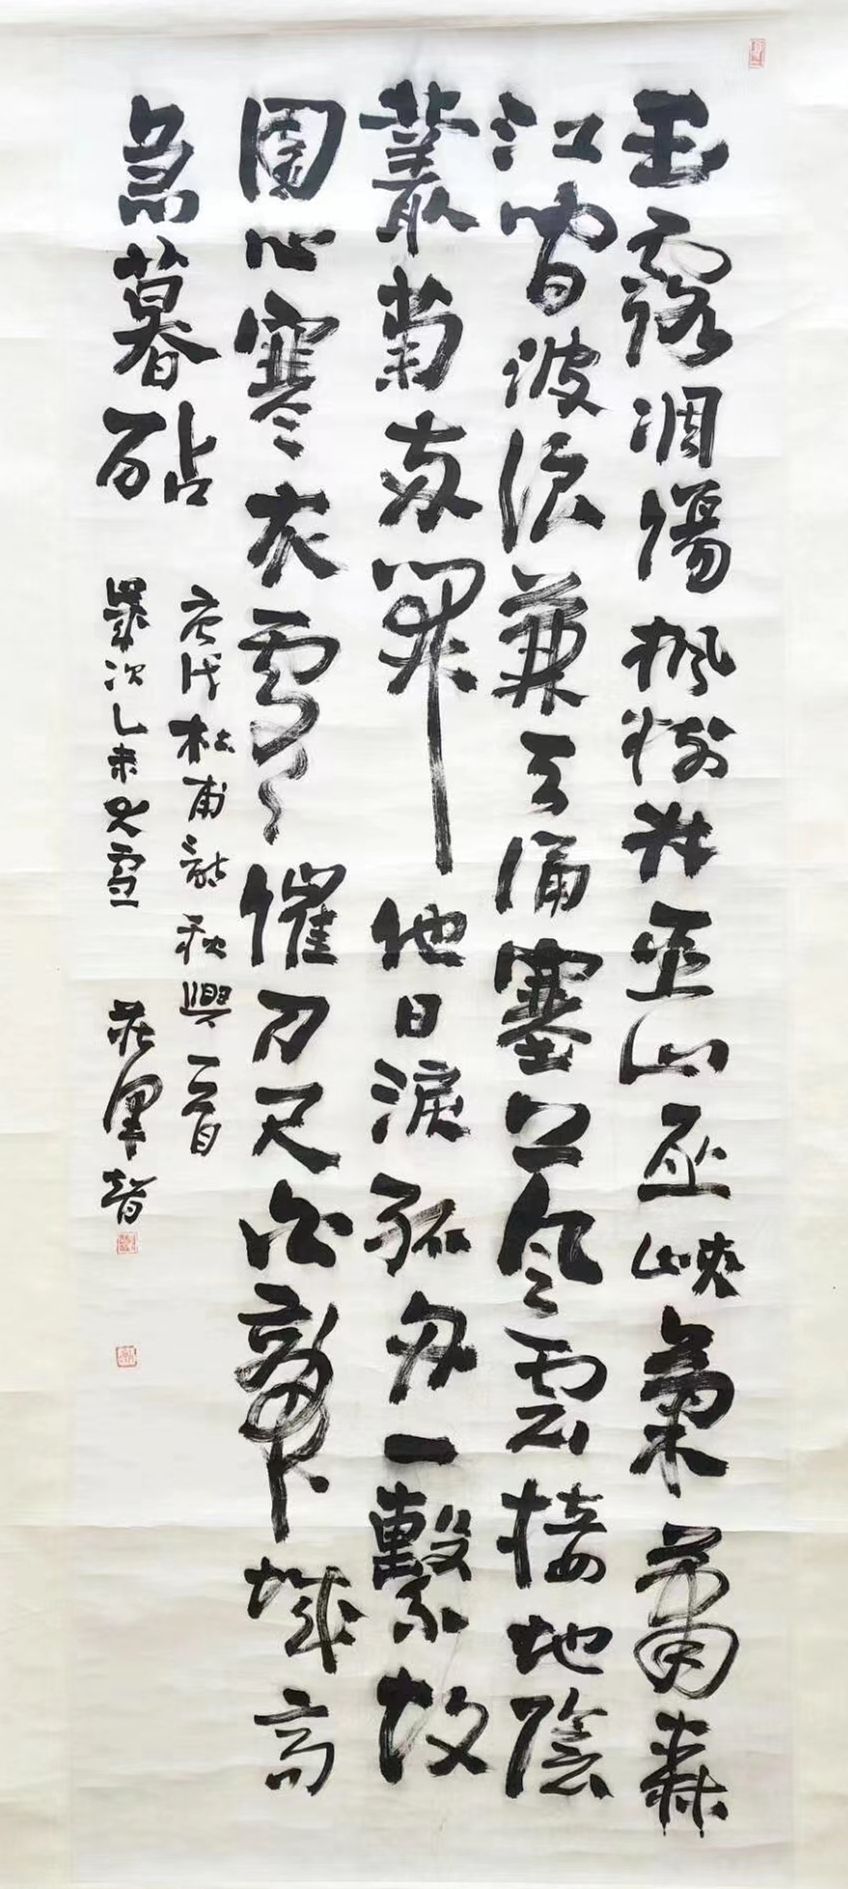 玉露凋傷楓樹林巫山巫峽氣蕭森
江間波浪兼天涌塞上風雲接地陰
叢菊兩開他日淚孤舟一繫故
園心寒衣處々催刀尺白帝城高
急暮砧
唐代杜甫詩秋興一首
歲次乙未大雪 莊